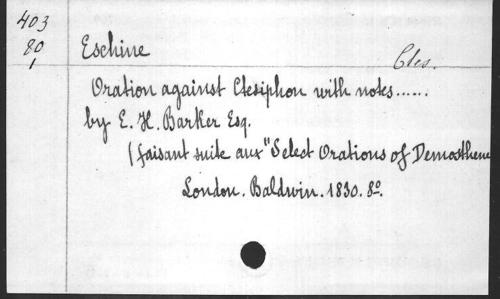 403
80
1
Eschine
Ctes.
Oration against Ctesiphon with notes......
by E. H. Barker Esq.
(faisant suite aux "Select Orations of Demosthene
London. Baldwin. 1830. 8º.